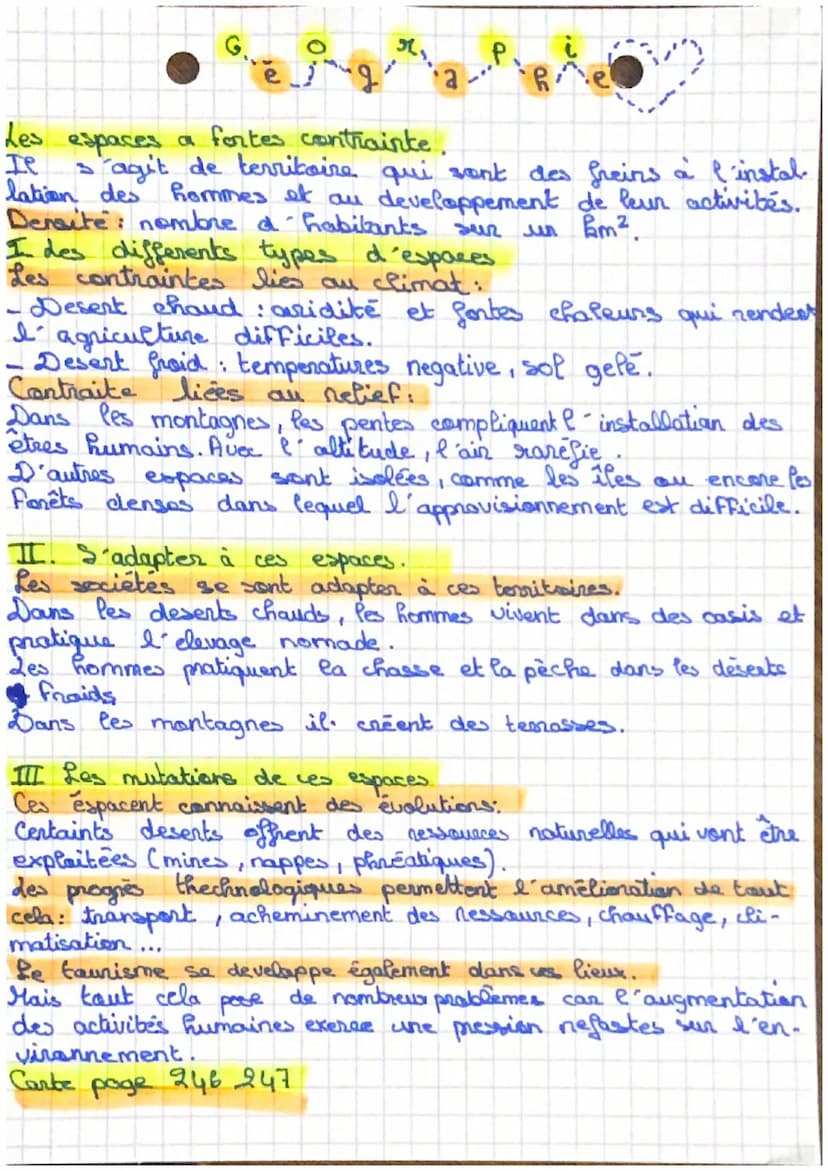 Géographie
Les espaces a fortes contrainte.
Il s'agit de territoire qui sont des freins à l'instal-
lation des hommes et au developpement de leur activités.
Densité : nombre d'habitants sur un km².
I des differents types d'espaces
Les contraintes lies au climat :
- Desert chaud : aridité et fortes chaleurs qui rendent
l'agriculture difficiles.
- Desert froid : temperatures negative, sol gelé.
Contraite liées au relief :
Dans les montagnes, les pentes compliquent l'installation des
êtres humains. Avec l'altitude, l'air raréfie.
D'autres espaces sont isolées, comme les îles ou encore les
forêts denses dans lequel l'approvisionnement est difficile.
II. S'adapter à ces espaces.
Les sociétés se sont adapter à ces territoires.
Dans les deserts chauds, les hommes vivent dans des oasis et
pratique l'elevage nomade.
Les hommes pratiquent la chasse et la pèche dans les déserts
froids
Dans les montagnes il. créent des terrasses.
III Les mutations de ces espaces
Ces éspacent connaissent des évolutions :
Certaints deserts offrent des ressources naturelles qui vont être
exploitées (mines, nappes, phréatiques).
Les progrès thechnologiques permettent l'amélioration de tout
cela : transport, acheminement des ressources, chauffage, cli-
matisation ...
Le tourisme se developpe également dans ces lieux.
Mais tout cela pose de nombreux problèmes car l'augmentation
des activités humaines exerce une pression nefastes sur l'en-
vironnement.
Carte page 246 247